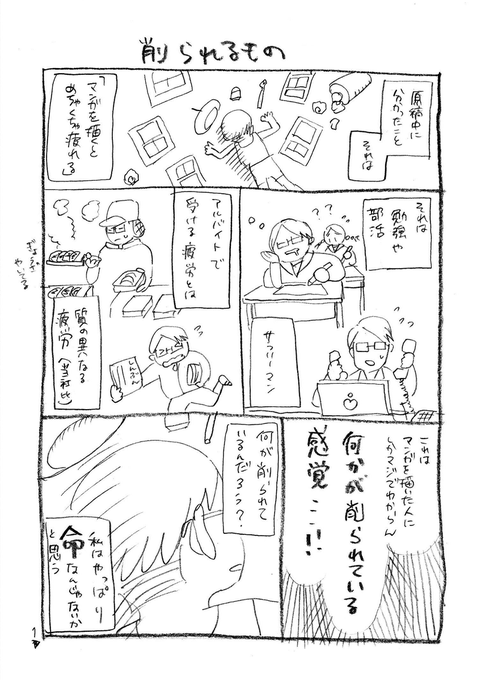 削られるもの
原稿中に
分かったこと
それは
「マンガを描くと
めちゃくちゃ疲れる」
それは
勉強や
部活
サラリーマン
アルバイトで
受ける疲労とは
ぎょうざ
やいてる
しんぶん
質の異なる
疲労(当社比)
これは
マンガを描いた人に
しかマジでわからん
何かが削られている
感覚…!!
何が削られて
いるんだろう?
私はやっぱり
命なんじゃないか
と思う
1